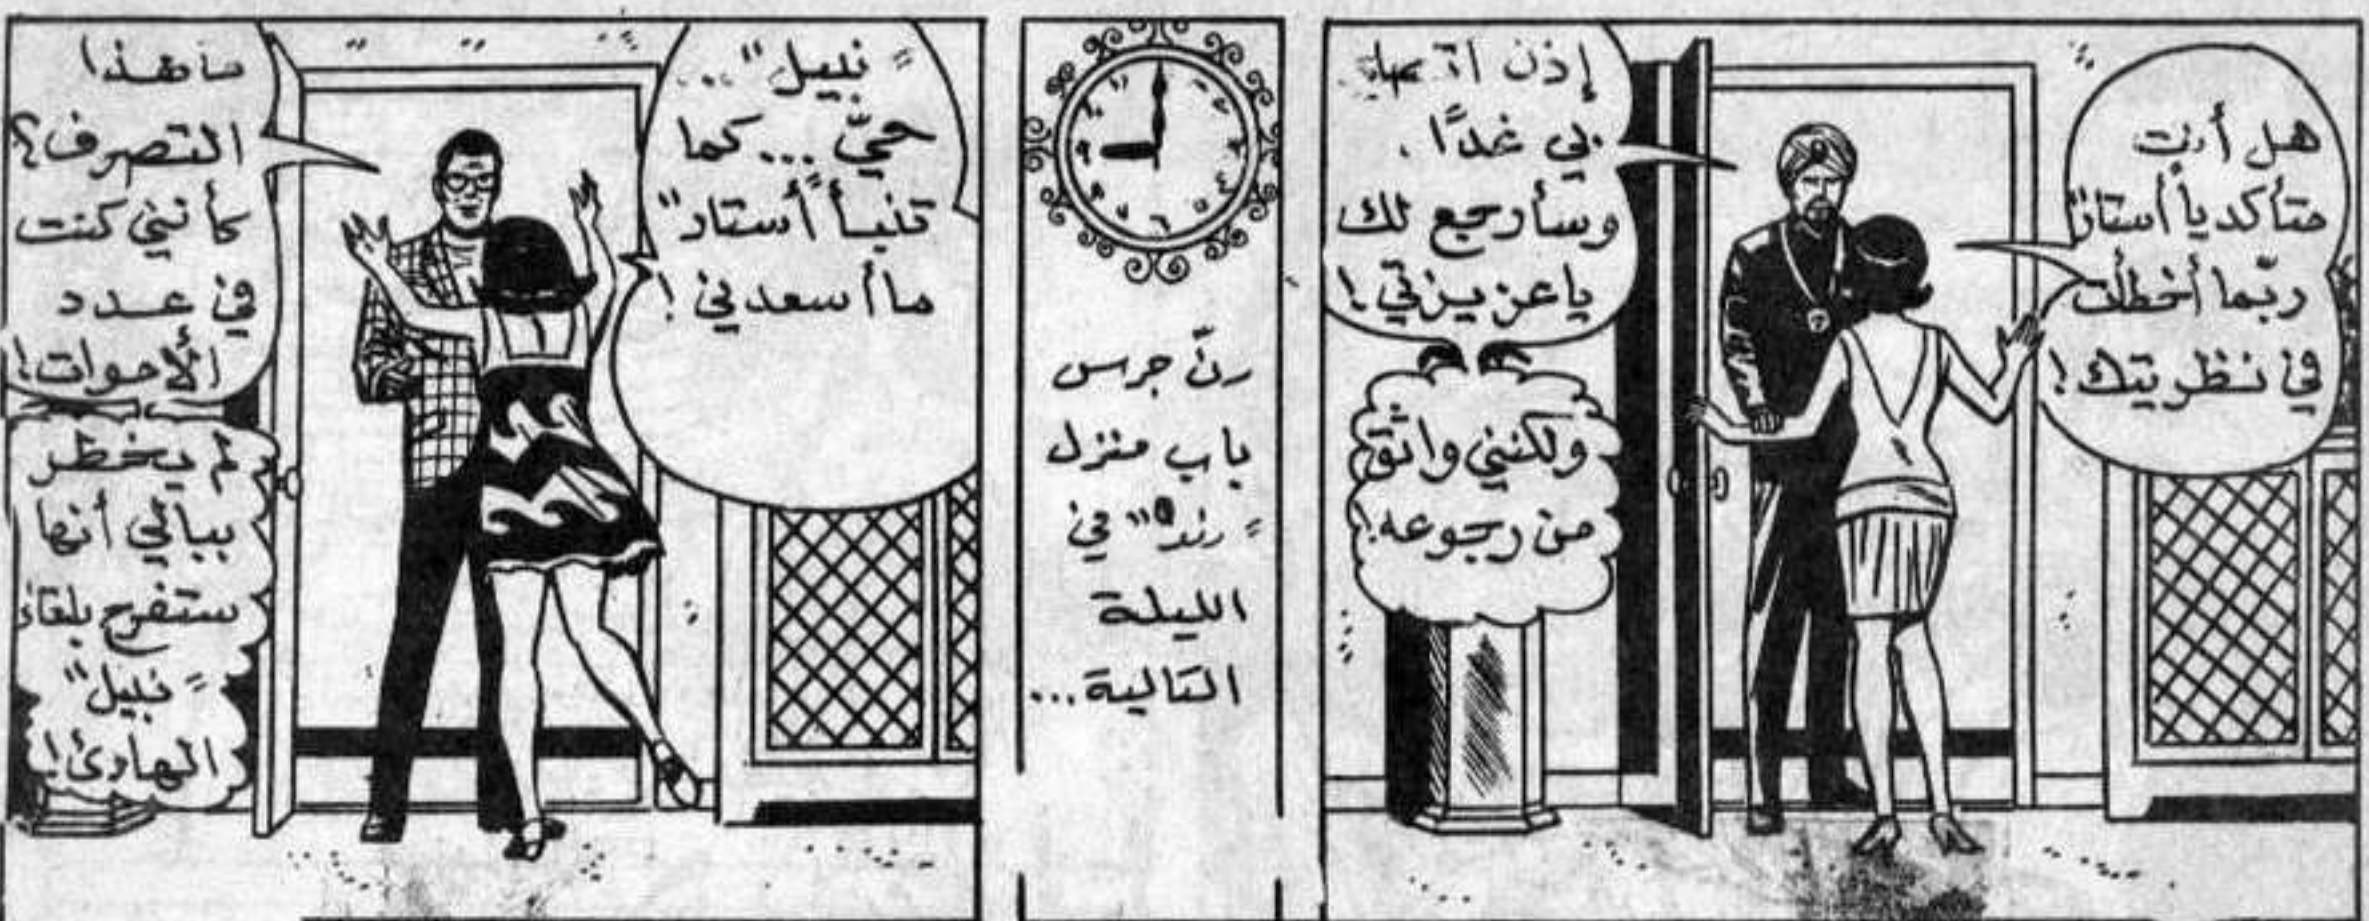 هل أنت
متأكد يا أستاذ
ربّما أخطأت
في نظريتك!
إذن
بي غدًا.
وسأرجع لك
يا عزيزتي!
ولكنني واثق
من رجوعه!
رنّ جرس
باب منزل
"رندا" في
الليلة
التالية...
"نبيل"...
حيّ... كما
تنبأ أستاذ"
ما أسعدني!
ما هذا
التصرف؟
كأنني كنت
في عدد
الأموات!
لم يخطر
ببالي أنها
ستفرح بلقاء
"نبيل"
الهادئ!